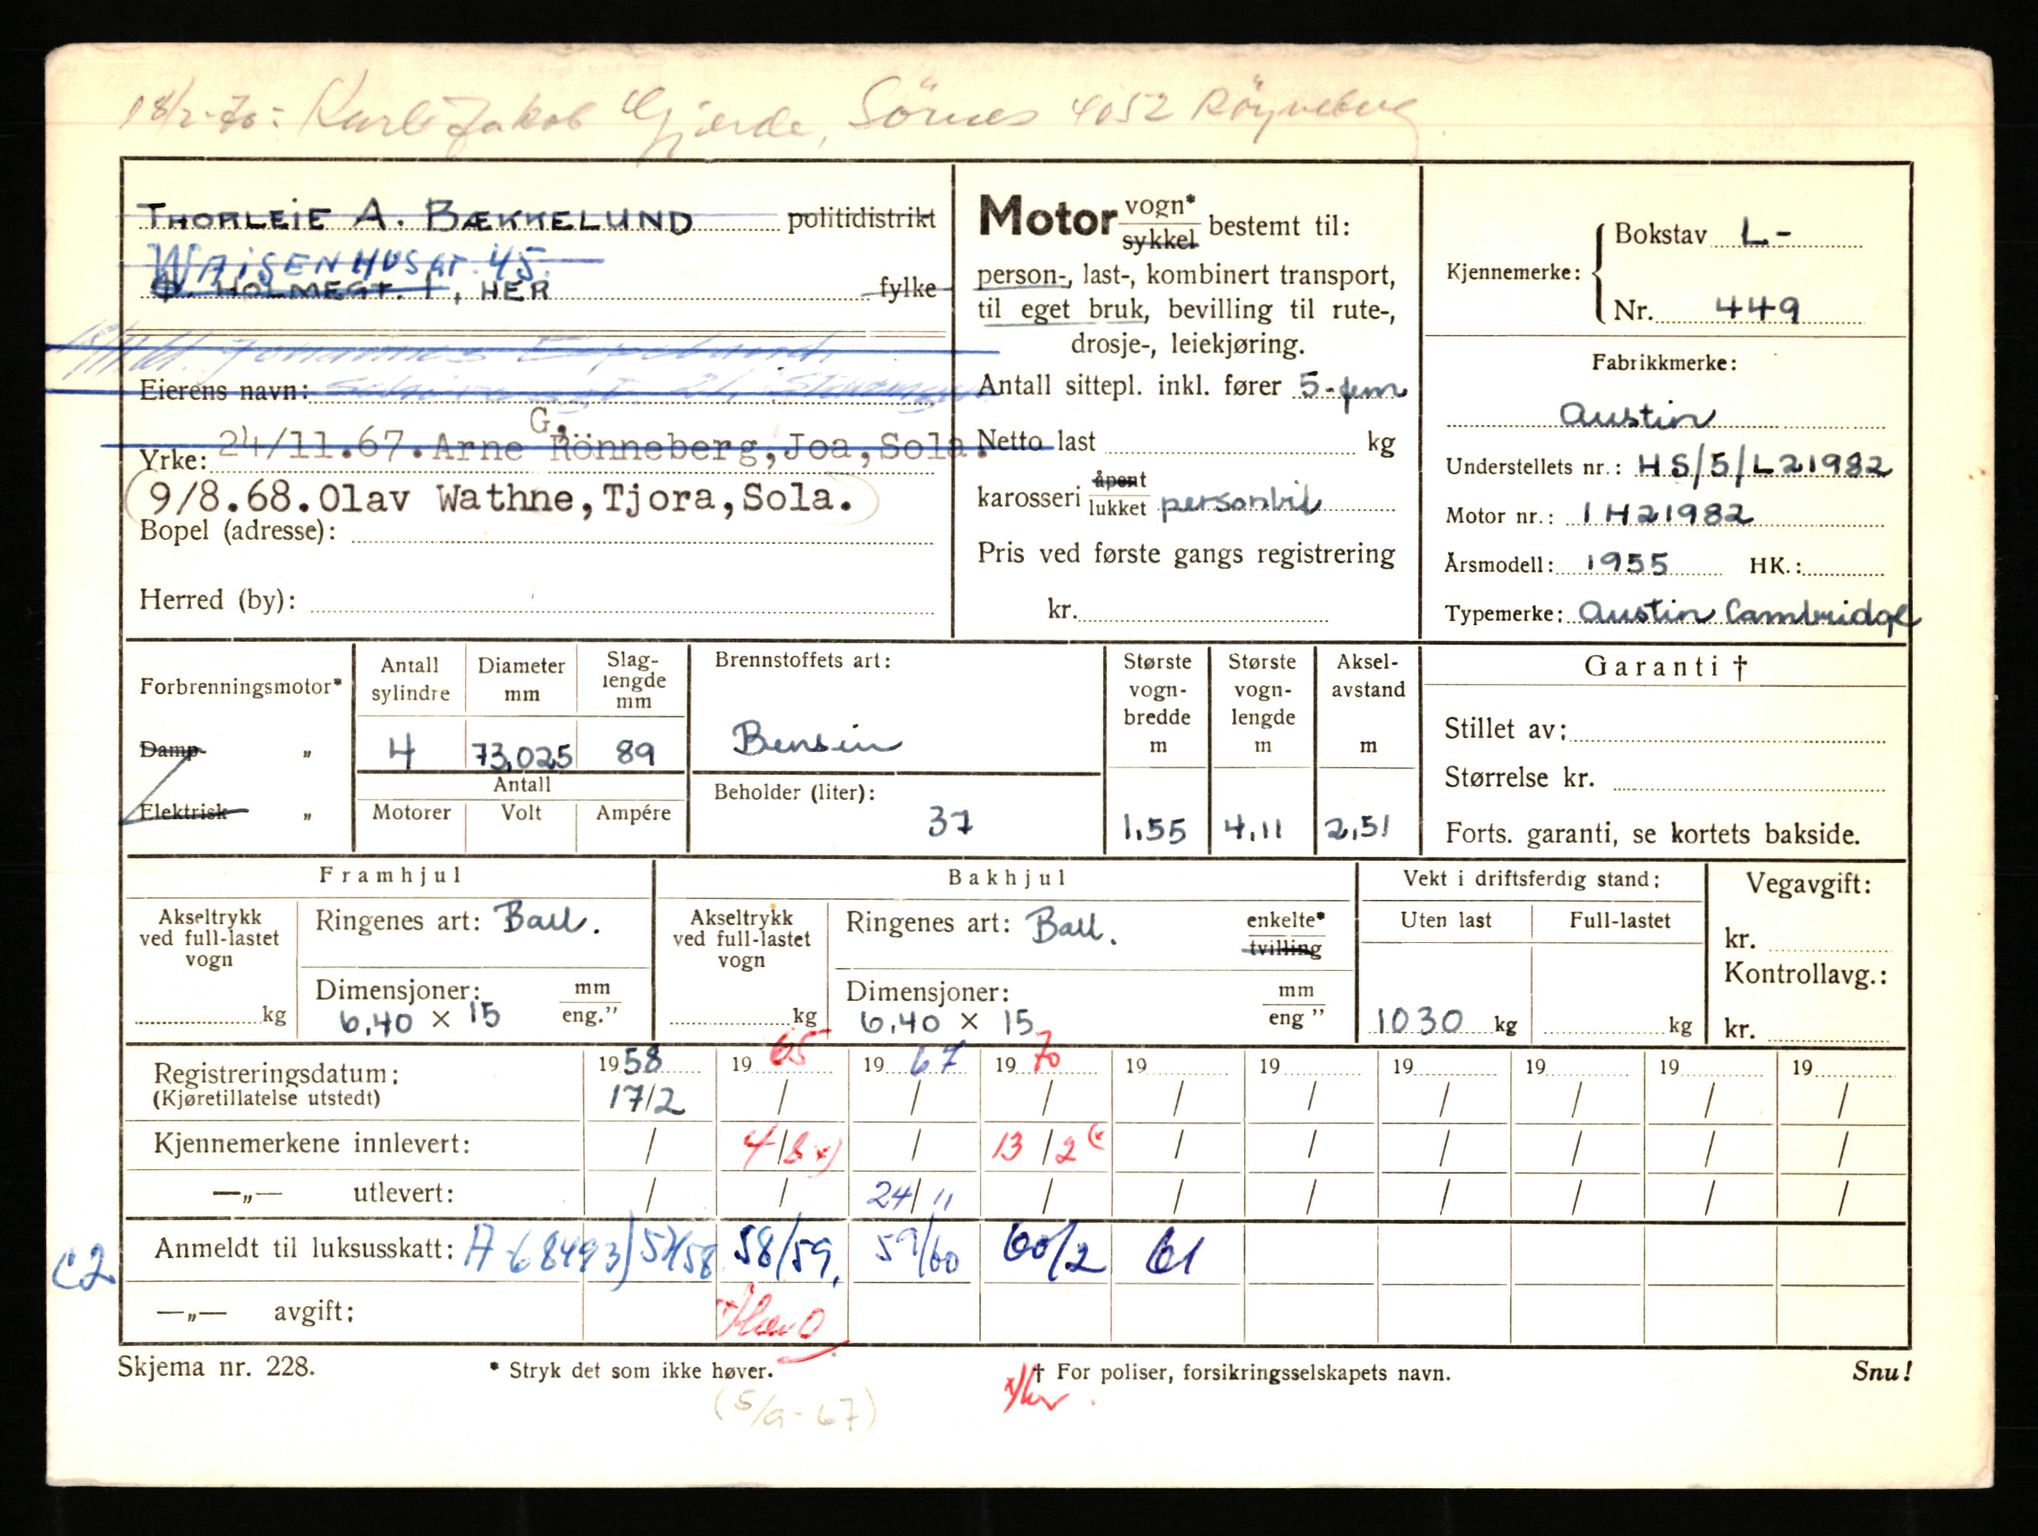 18/2-70: Karl Jakob Gjerde, Sörnes 4052 Röyneberg
THORLEIE A. BÆKKELUND politidistrikt
WAISENHUSGT. 45.
HOLMEGT. 1, HER fylke
Johannes
Eierens navn: 21, Stavanger
G.
24/11.67. Arne Rönneberg, Joa, Sola.
Yrke:
9/8.68. Olav Wathne, Tjora, Sola.
Bopel (adresse):
Herred (by):
Motor vogn* sykkel bestemt til:
person-, last-, kombinert transport,
til eget bruk, bevilling til rute-,
drosje-, leiekjøring.
Antall sittepl. inkl. fører 5-fem
Netto last kg
karosseri åpent lukket personbil
Pris ved første gangs registrering
kr.
Kjennemerke: Bokstav L-
Nr. 449
Fabrikkmerke:
Austin
Understellets nr.: HS/5/L21982
Motor nr.: 1H21982
Årsmodell: 1955 HK.:
Typemerke: Austin Cambridge
Forbrenningsmotor*
Damp "
Elektrisk "
Antall sylindre Diameter mm Slag-lengde mm
4 73,025 89
Antall
Motorer Volt Ampére
Brennstoffets art:
Bensin
Beholder (liter):
37
Største vogn-bredde m Største vogn-lengde m Aksel-avstand m
1,55 4,11 2,51
Garanti †
Stillet av:
Størrelse kr.
Forts. garanti, se kortets bakside.
Framhjul
Akseltrykk ved full-lastet vogn
kg
Ringenes art: Ball.
Dimensjoner: mm eng."
6,40 × 15
Bakhjul
Akseltrykk ved full-lastet vogn
kg
Ringenes art: Ball. enkelte* tvilling
Dimensjoner: mm eng "
6,40 × 15
Vekt i driftsferdig stand:
Uten last Full-lastet
1030 kg kg
Vegavgift:
kr.
Kontrollavg.:
kr.
Registreringsdatum: 1958 1965 1967 1970 19 19 19 19 19 19
(Kjøretillatelse utstedt) 17/2 / / / / / / / / /
Kjennemerkene innlevert: / 4/8 x) / 13/2 (x / / / / / /
—„— utlevert: / / 24/11 / / / / / / /
Anmeldt til luksusskatt: A-68493) 57/58 58/59. 59/60 60/2 61
C2
—„— avgift:
Skjema nr. 228. * Stryk det som ikke høver. † For poliser, forsikringsselskapets navn. Snu!
(5/9-67)